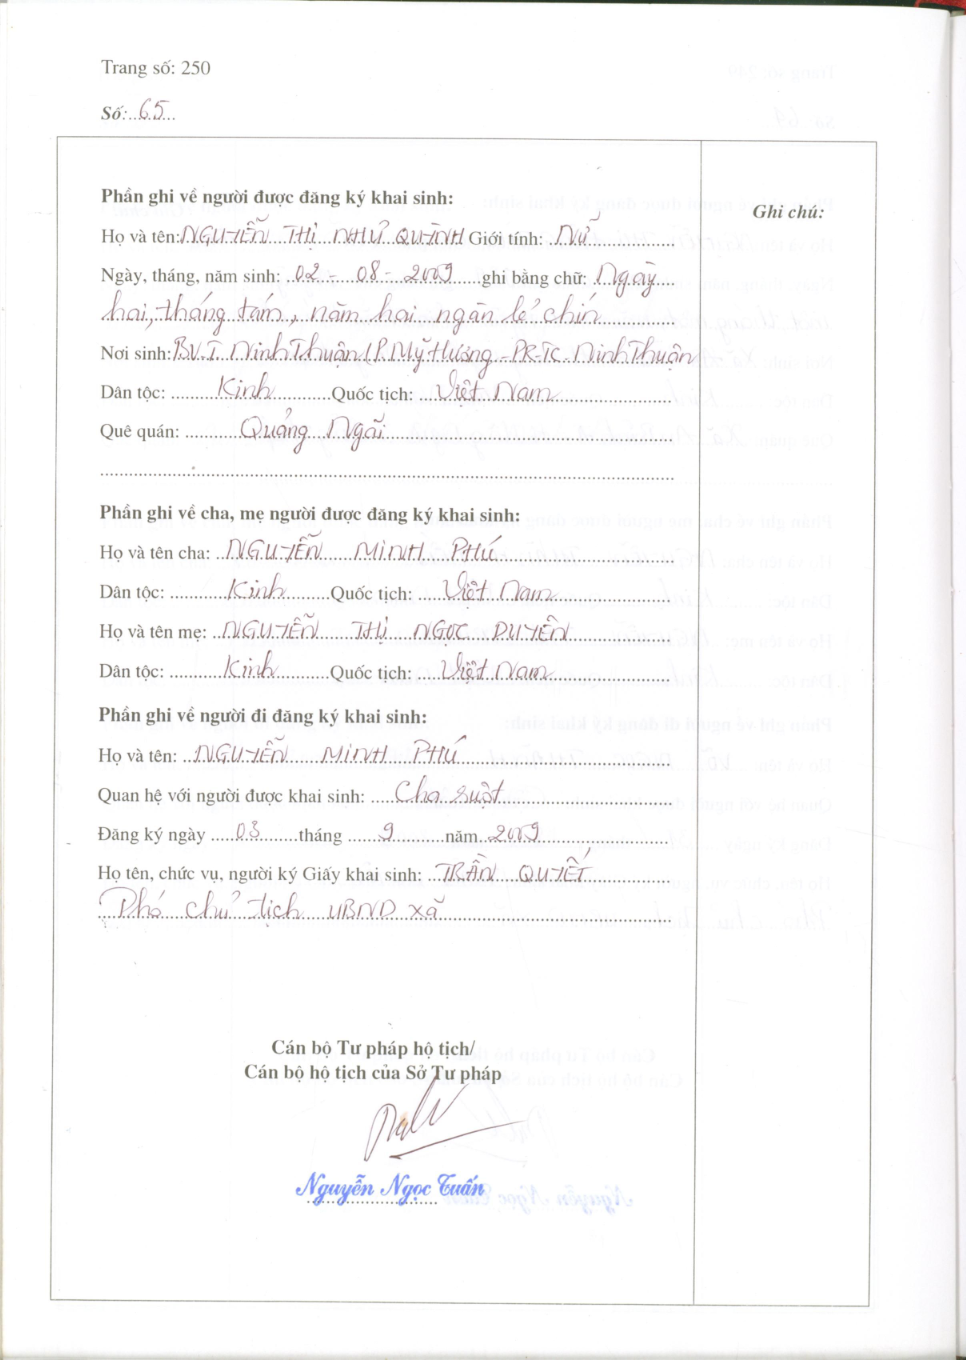 Trang số: 250
Số: 65
Phần ghi về người được đăng ký khai sinh:
Ghi chú:
Họ và tên: NGUYỄN THỊ NHƯ QUỲNH Giới tính: Nữ
Ngày, tháng, năm sinh: 02 - 08 - 2009 ghi bằng chữ: Ngày
hai, tháng tám, năm hai ngàn lẻ chín
Nơi sinh: BV.T Ninh Thuận / P. Mỹ Hương - PR-TC Ninh Thuận
Dân tộc: Kinh Quốc tịch: Việt Nam
Quê quán: Quảng Ngãi
Phần ghi về cha, mẹ người được đăng ký khai sinh:
Họ và tên cha: NGUYỄN MINH PHÚ
Dân tộc: Kinh Quốc tịch: Việt Nam
Họ và tên mẹ: NGUYỄN THỊ NGỌC DUYÊN
Dân tộc: Kinh Quốc tịch: Việt Nam
Phần ghi về người đi đăng ký khai sinh:
Họ và tên: NGUYỄN MINH PHÚ
Quan hệ với người được khai sinh: Cha ruột
Đăng ký ngày 03 tháng 9 năm 2009
Họ tên, chức vụ, người ký Giấy khai sinh: TRẦN QUYẾT
Phó chủ tịch UBND xã
Cán bộ Tư pháp hộ tịch/
Cán bộ hộ tịch của Sở Tư pháp
Nguyễn Ngọc Tuấn